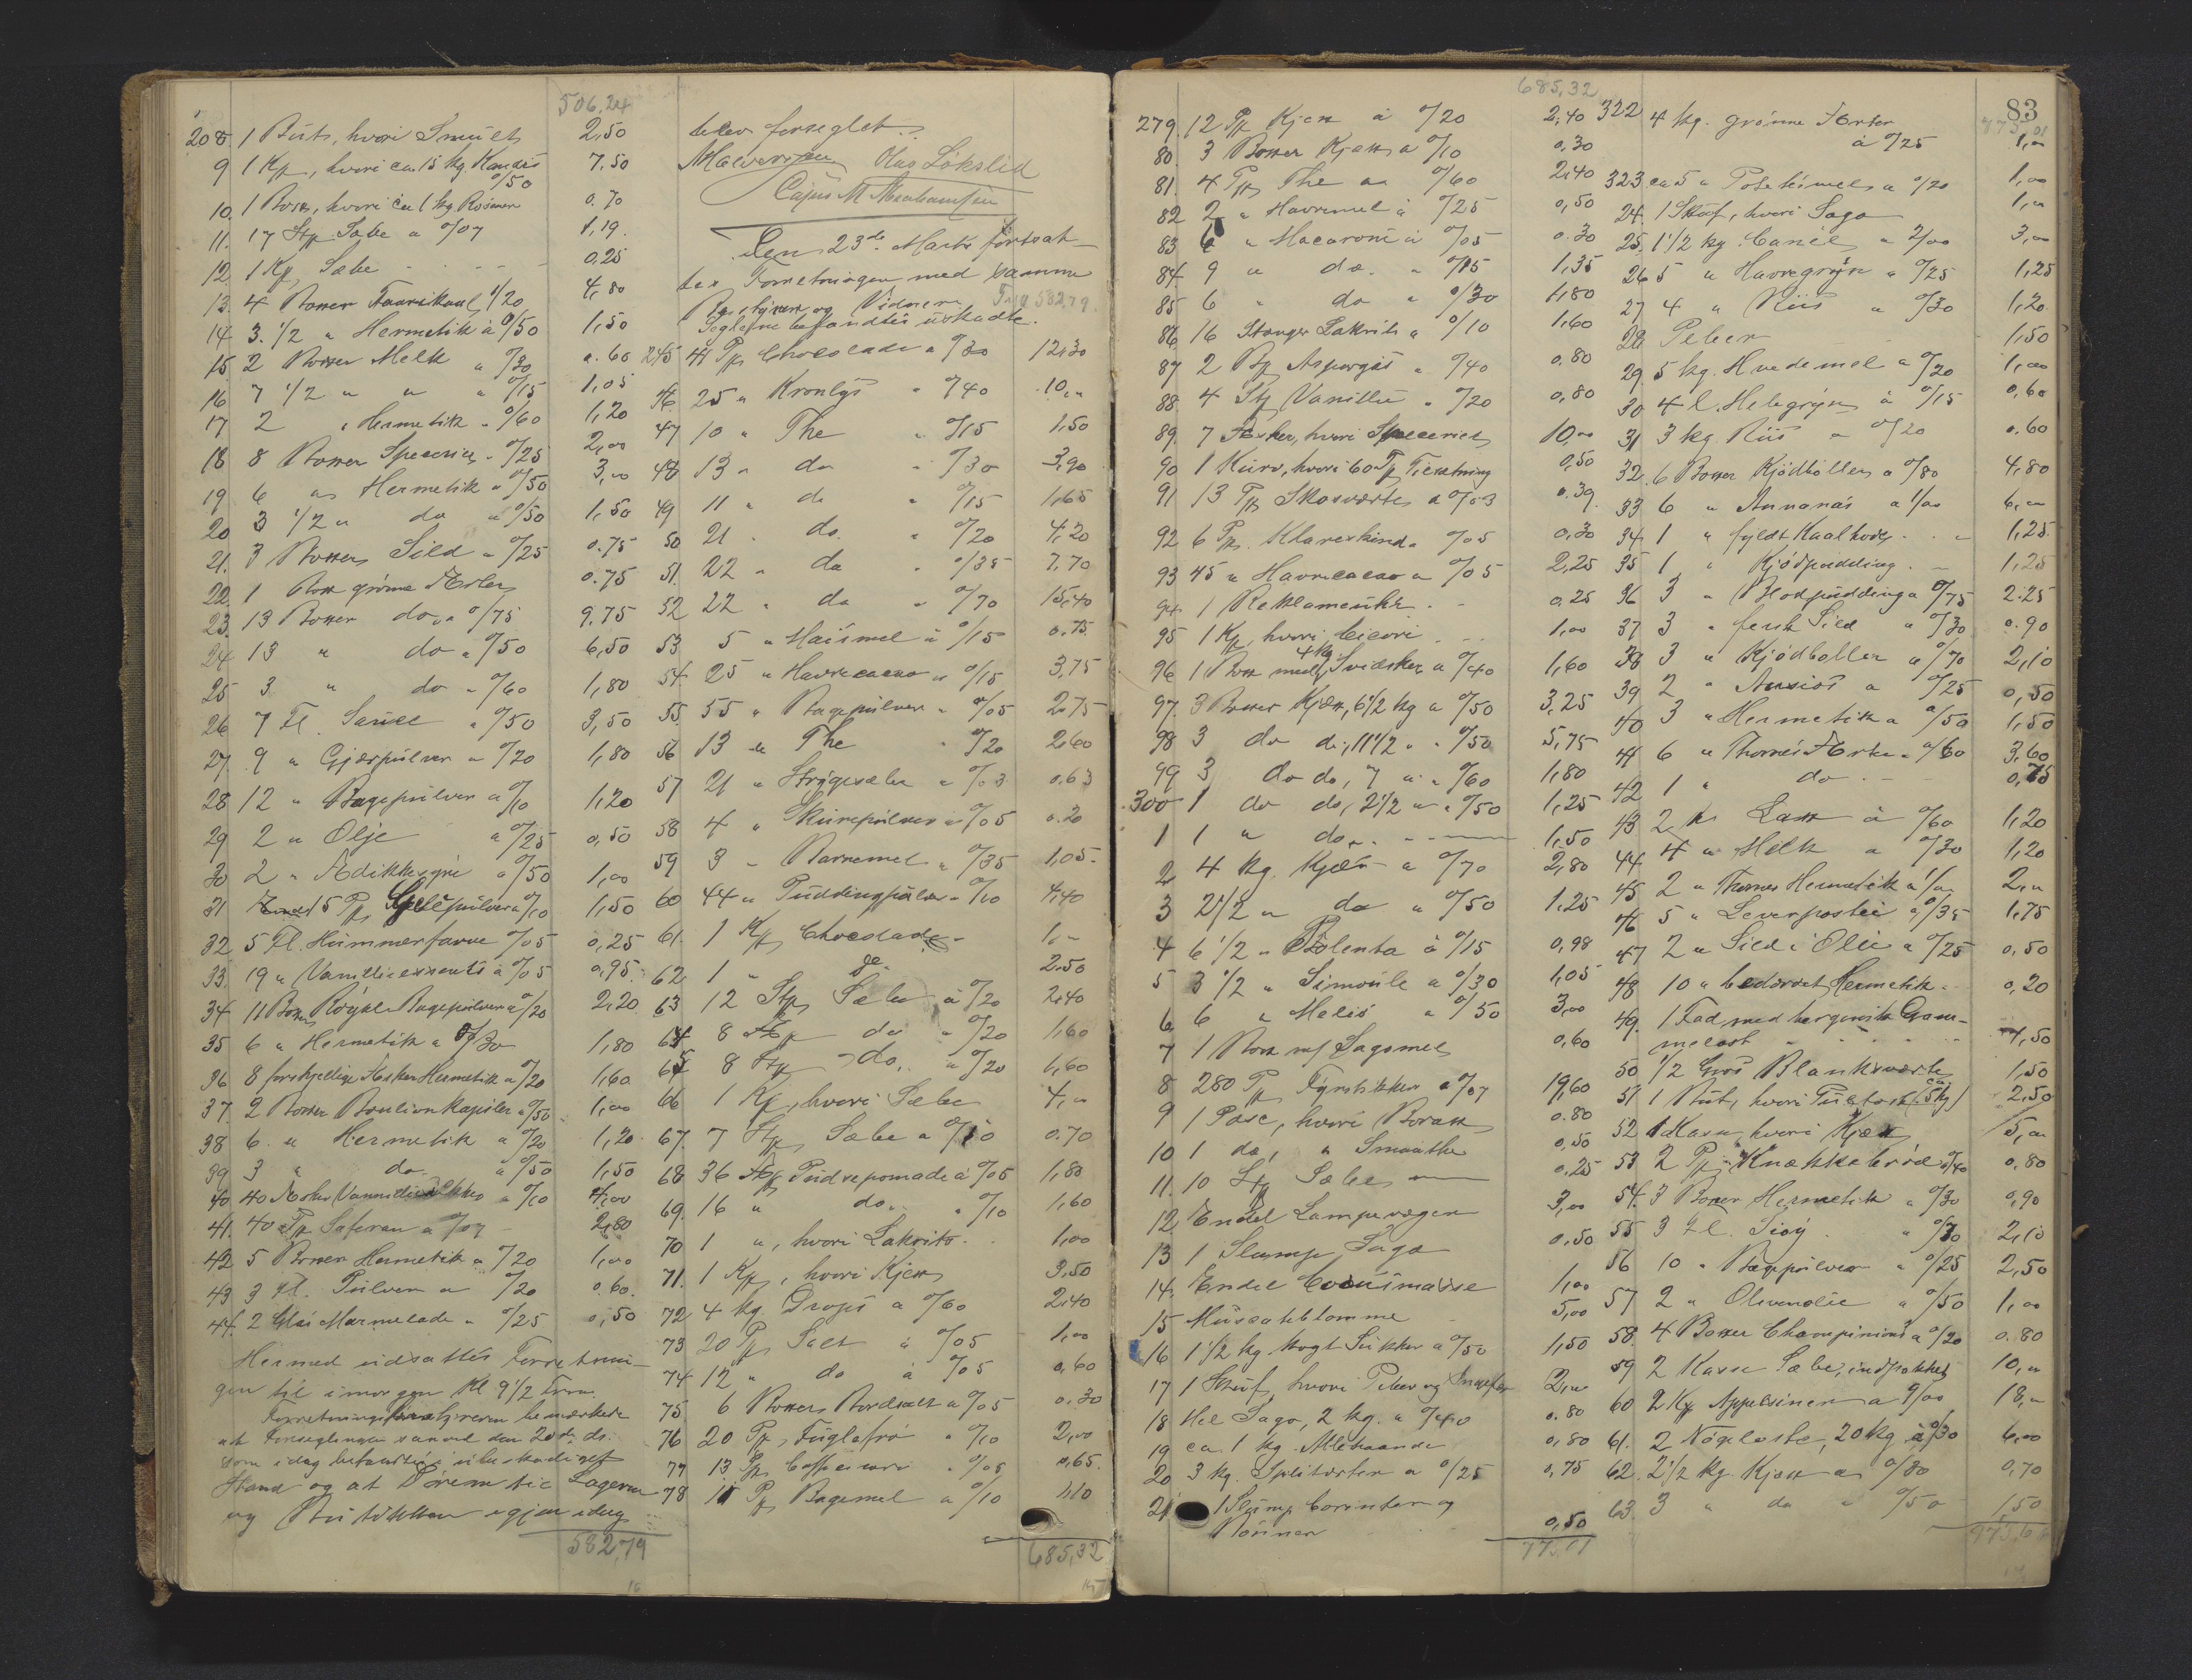 506,24
208. 1 Bøtt, hvori Smult 2,50
9 1 Kp, hvori ca. 15 kg. Kandis 0/50 7,50
10. 1 Box, hvori ca 1 kg. Rosiner 0.70
11. 17 Stp. Sæbe a 0/07 1,19.
12. 1 Kp. Sæbe - - - - 0,25
13. 4 Boxer Faarikaal 1/20 4,80
14 3. 1/2 " Hermetik à 0/50 1,50
15. 2 Boxer Melk " 0/30 0.60
16 7 1/2 " " " 0/15 1,05
17 2 " Hermetik " 0/60 1,20
18 8 Boxer Specerier " 0/25 2,00
19 6 " Hermetik " 0/50 3,00
20 3 1/2 " do " 0/50 1,50
21. 3 Boxer Sild " 0/25 0.75
22. 1 Box grønne Ærter 0.75
23. 13 Boxer do. a 0/75 9.75
24 13 " do " 0/50 6,50
25 3 " do " 0/60 1,80
26 7 Fl. Sauce " 0/50 3,50
27. 9 " Gjærpulver " 0/20 1,80
28 12 " Bagepulver a 0/10 1,20
29 2 " Olje a 0/25 0,50
30 2 " Ædikksyre a 0/50 1,00
31 15 Pk Geléepulver a 0/10 1,50
32 5 Fl. Hummerfarve 0/05 0,25
33. 19 " Vanilleessents à 0/05 0,95
34 11 Boxer Royal Bagepulver a 0/20 2,20
35 6 " Hermetik a 0/30 1,80
36 8 forskjellige Æsker Hermetik a 0/20 1,60
37. 2 Boxer Boulionkapsler a 0/50 1,00
38 6. " Hermetik a 0/20 1,20
39 3 " do. a 0/50 1,50
40 40 Æsker a 0/10 4,00
41. 40 Pk Safran a 0/07 2,80
42 5 Boxer Hermetik a 0/20 1,00
43 3 Fl. Pulver a 0/20 0.60.
44. 2 Glas Marmelade " 0/25 0,50
Hermed udsattes Forretnin-
gen til imorgen Kl. 9 1/2 Frm.
Forretningsbestyreren bemærkede
at Forseglingen saavel den 20de ds.
som idag befandtes ubeskadiget
Stand og at Dørene til Lageren
og Butikken igjen idag
582,79
blev forseglet.
Olaf Løkslid
Cajus M Abrahamsen
Den 23de Marts fortsat-
tes Forretningen med samme
Bestyrer og Vidner. Fra 582,79.
Seglene befandtes uskadte.
245 41 Pk Chocolade a 0/30 12,30
46. 25 " Kronlys " 0/40 10,"
47 10 " The " 0/15 1,50
48 13 " do " 0/30 3,90
49 11 " do " 0/15 1,65
50 21 " do. " 0/20 4,20
51. 22 " do " 0/35 7,70
52 22 " do " 0/70 15,40
53 5 " Maismel à 0/15 0.75
54. 25 " Havrecacao " 0/15 3,75
55. 55 " Bagepulver " 0/05 2.75
56 13 " The " 0/20 2,60
57 21 " Strygesæbe " 0/03 0.63
58 4 " Skurepulver à 0/05 0.20
59 3 " Barnemel " 0/35 1,05.
60 44 " Puddingpulver " 0/10 4,40
61. 1 Kp Chocolade - 1,-
62 1 " do. 2.50
63 12 Stp Sæbe à 0/20 2,40
64 8 Stp do " 0/20 1,60
65 8 Stp do. " 0/20 1,60
66 1 Kp, hvori Sæbe 4,"
67. 7 Stp Sæbe a 0/10 0.70
68 36 Pudrepomade à 0/05 1,80
69. 16 " do. " 0/10 1,60
70 1 ", hvori Lakrits . 1,00
71. 1 Kp, hvori Kjex 3,50
72 4 kg. Drops a 0/60 2,40
73 20 Pk Salt " 0/05 1,00
74 12 " do à 0/05 0,60
75. 6 Boxer Bordsalt a 0/05 0.30
76 20 Pk Fuglefrø " 0/10 2,00
77 13 Pk " 0/05 0,65.
78 11 Pk Bagemel a 0/10 1,10
685,32
685,32
279. 12 Pk Kjex à 0/20 2,40
80. 3 Boxer Kjæx a 0/10 0.30
81. 4 Pk The a 0/60 2,40
82 2 " Havremel à 0/25 0,50
83 6 " Macaroni à 0/05 0.30
84 9 " do. " 0/15 1,35
85 6 " do " 0/30 1,80
86 16 Stænger Lakrits a 0/10 1,60
87 2 Bp Asparges " 0/40 0.80
88. 4 Stg Vanille " 0/20 0,80
89. 7 Æsker, hvori Specerier 10,00
90 1 Kurv, hvori 60 Pk 0,50
91 13 Pk Skosværte a 0/03 0.39.
92 6 Pk. Klareskind " 0/05 0,30
93 45 " Havrecacao a 0/05 2,25
94 1 Reklameuhr . - 0.25
95 1 Kp, hvori Cicori . . . 1,00
96 1 Box med 4 kg Svidsker a 0/40 1,60
97. 3 Boxer Kjæx, 6 1/2 kg a 0/50 3,25
98 3 do do, 11 1/2 " " 0/50 5,75
99 3 do do, 7 " " 0/60 1,80
300 1 do do, 2 1/2 " " 0/50 1,25
1 1 " do. - 1,50
2 4 kg. Kjæx a 0/70 2,80
3 2 1/2 " do " 0/50 1.25
4 6 1/2 " Polenta à 0/15 0,98
5 3 1/2 " Simoule a 0/30 1,05
6. 6 " Melis " 0/50 3,00
7 1 Box m/ Sagomel 0,60
8 280 Pk Fyrstikker a 0/07 19,60
9 1 Pose, hvori Borax 0.80
10 1 do, " Smaathe 0,50
11. 10 Stp Sæbe 0.25
12 Endel Lampevæger 3,00
13 1 Slump Sago 0,50
14. Endel Cocusmasse 1,00
15 Muscatblomme 5,00
16 1 1/2 kg kogt Sukker a 0/50 1,50
17 1 Skuf, hvori Peber og Ingefær 2,"
18 Hel Sago, 2 kg. a 0/40 0.80
19 ca. 1 kg. Allehaande 0,80
20 3 kg. Splitærter a 0/25 0,75
21 1 Slump Corinter og
Rosiner 0,50
775,01
83
775,01
322 4 kg. grønne Ærter
à 0/25 1,"
323 ca 5 " Potetesmel a 0/20 1,00
24. 1 Skuf, hvori Sago 1,"
25. 1 1/2 kg. Canel " 2/00 3,"
26 5 " Havregryn a 0/25 1,25
27 4 " Riis " 0/30 1,20
28 Peber 1,50
29. 5 kg. Hvedemel a 0/20 1,00
30 4 l. Helegryn à 0/15 0,60
31 3 kg. Riis a 0/20 0.60
32. 6 Boxer Kjødboller a 0/80 4,80
33 6 " Ananas a 1/00 6,"
34. 1 " fyldt Kaalhode . . - 1,25.
35 1 " Kjødpudding . - 1,25
36 3 " Blodpudding a 0/75 2.25
37 3 " fersk Sild " 0/30 0.90
38 3 " Kjødboller a 0/70 2,10
39 2 " Ansios a 0/25 0,50
40 3 " Hermetik a 0/50 1,50
41 6 " Thornes Ærter " 0/60 3,60
42 1 " do . - - 0,75
43 2 " Lax à 0/60 1,20
44 4 " Melk a 0/30 1,20
45 2 " Thornes Hermetik a 1/" 2,"
46 5 " Leverpostei a 0/35 1,75
47 2 " Sild i Olie a 0/25 0,50
48 10 " bedærvet Hermetik - 0,20
49. 1 Fad med bergensk Gam-
melost 4,50
50 1/2 Gros Blanksværte 1,50
51 1 Bøt, hvori (ca 5 kg) 2,50
52 1 Kasse, hvori Kjæx 5,"
53 2 Pk. Knækkebrød a 0/40 0,80
54. 3 Boxer Hermetik a 0/30 0,90
55 3 Fl. Soy . " 0/70 2,10
56 10 " Bagepulver " 0/25 2,50
57 2 " Olivenolie a 0/50 1,00
58. 4 Boxer Champinions a 0/20 0.80
59 2 Kasser Sæbe, indpakket 10,"
60 2 Kp Appelsiner a 9/00 18,"
61. 2 Nøgleoste, 20 kg à 0/30 6,00
62. 2 1/2 kg. Kjæx a 0/30 0,70
63. 3 " do " 0/50 1,50